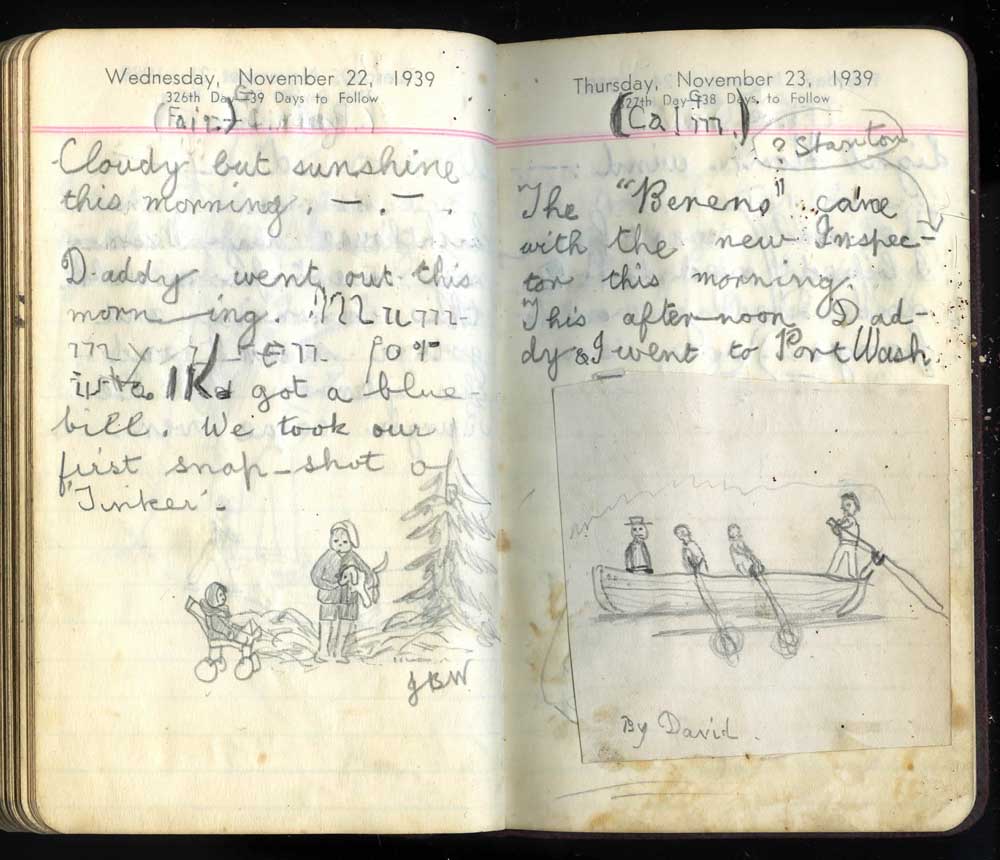 Wednesday, November 22, 1939
326th Day 39 Days to Follow
(Fair)
Cloudy but sunshine
this morning. — . — .
Daddy went out this
morn—ing.
got a blue-
bill. We took our
first snap-shot of
'Tinker'.
JBW
Thursday, November 23, 1939
327th Day 38 Days to Follow
(Calm.)
? Stanton
The "Berens" came
with the new Inspec-
tor this morning.
This after-noon Dad-
dy & I went to Port Wash.
By David.